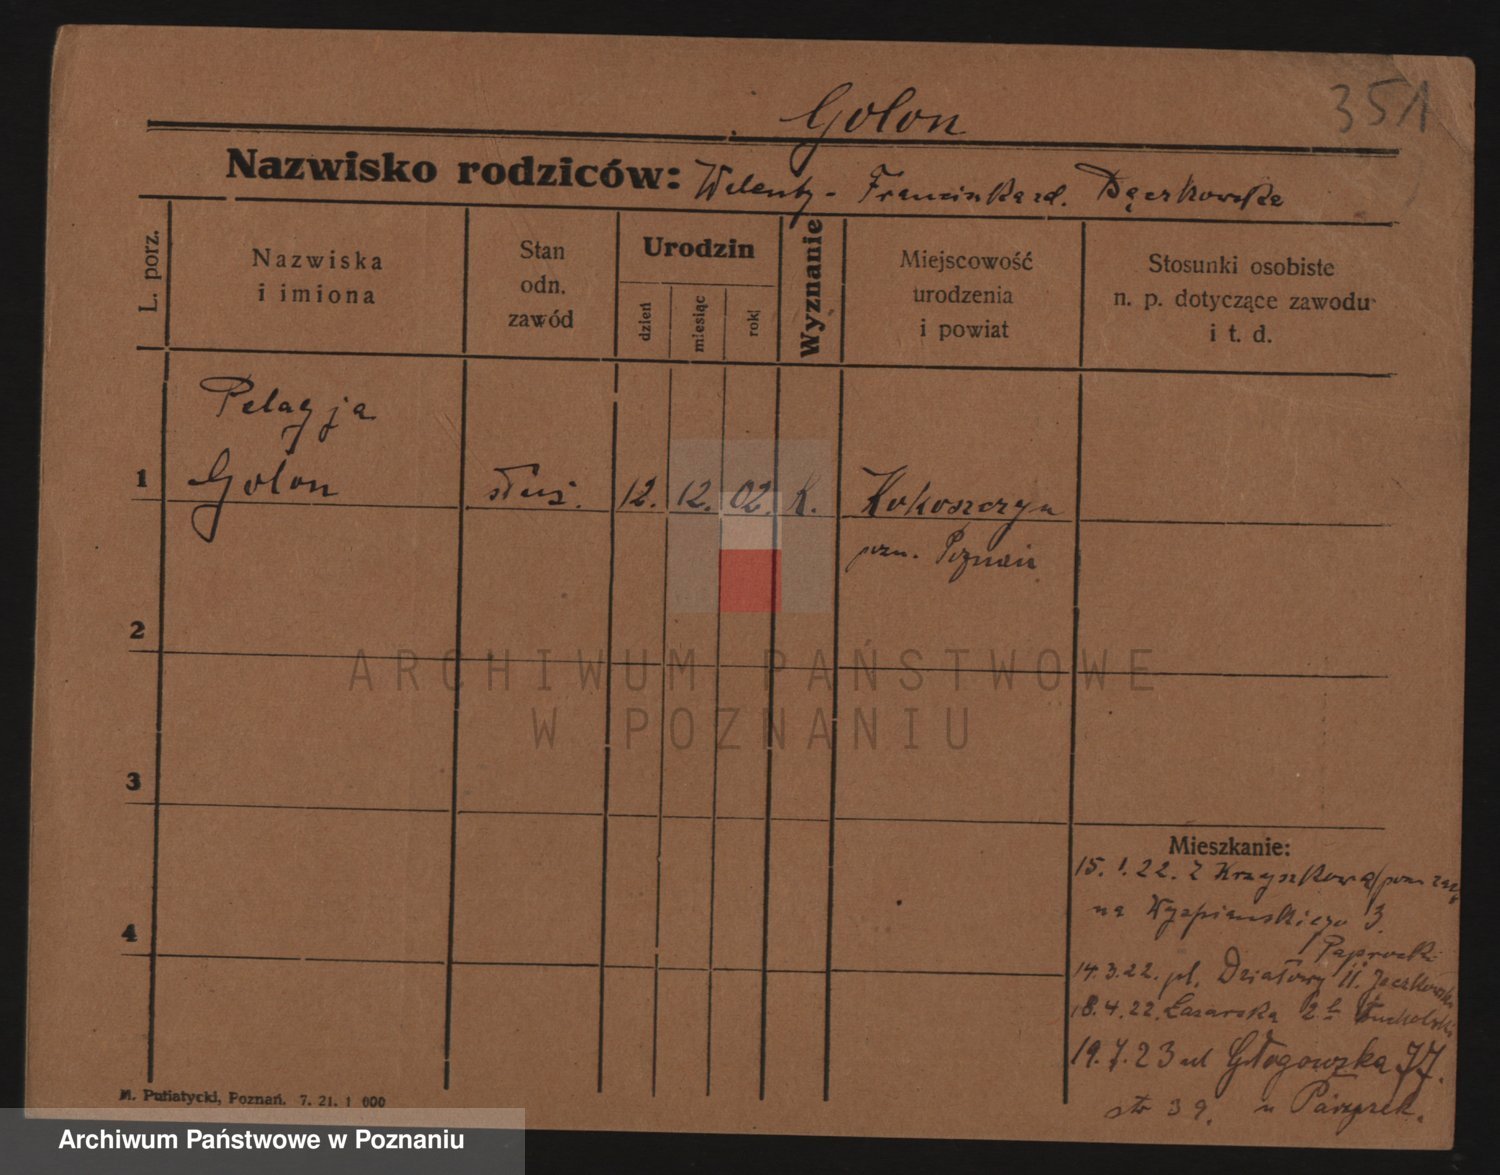 351
Golon
Nazwisko rodziców: Walenty - Franciszka zd. Bączkowska
L. porz.
Nazwiska
i imiona
Stan
odn.
zawód
Urodzin
dzień
miesiąc
rok
Wyznanie
Miejscowość
urodzenia
i powiat
Stosunki osobiste
n. p. dotyczące zawodu
i t. d.
Pelagja
1 Golon służ. 12. 12. 02. K. Kokoszczyn
pow. Poznań
2
ARCHIWUM PAŃSTWOWE
W POZNANIU
3
Mieszkanie:
15.1.22. z Krzyszkowa
na Wyspiańskiego 3
4
Paprocki
14.3.22. pl. Działowy 11. Jaczkowski
18.4.22. Łazarska 2b Tucholski
19.7.23 ul Głogowska 77.
str 39. u
M. Putiatycki, Poznań. 7. 21. 1 000
Archiwum Państwowe w Poznaniu